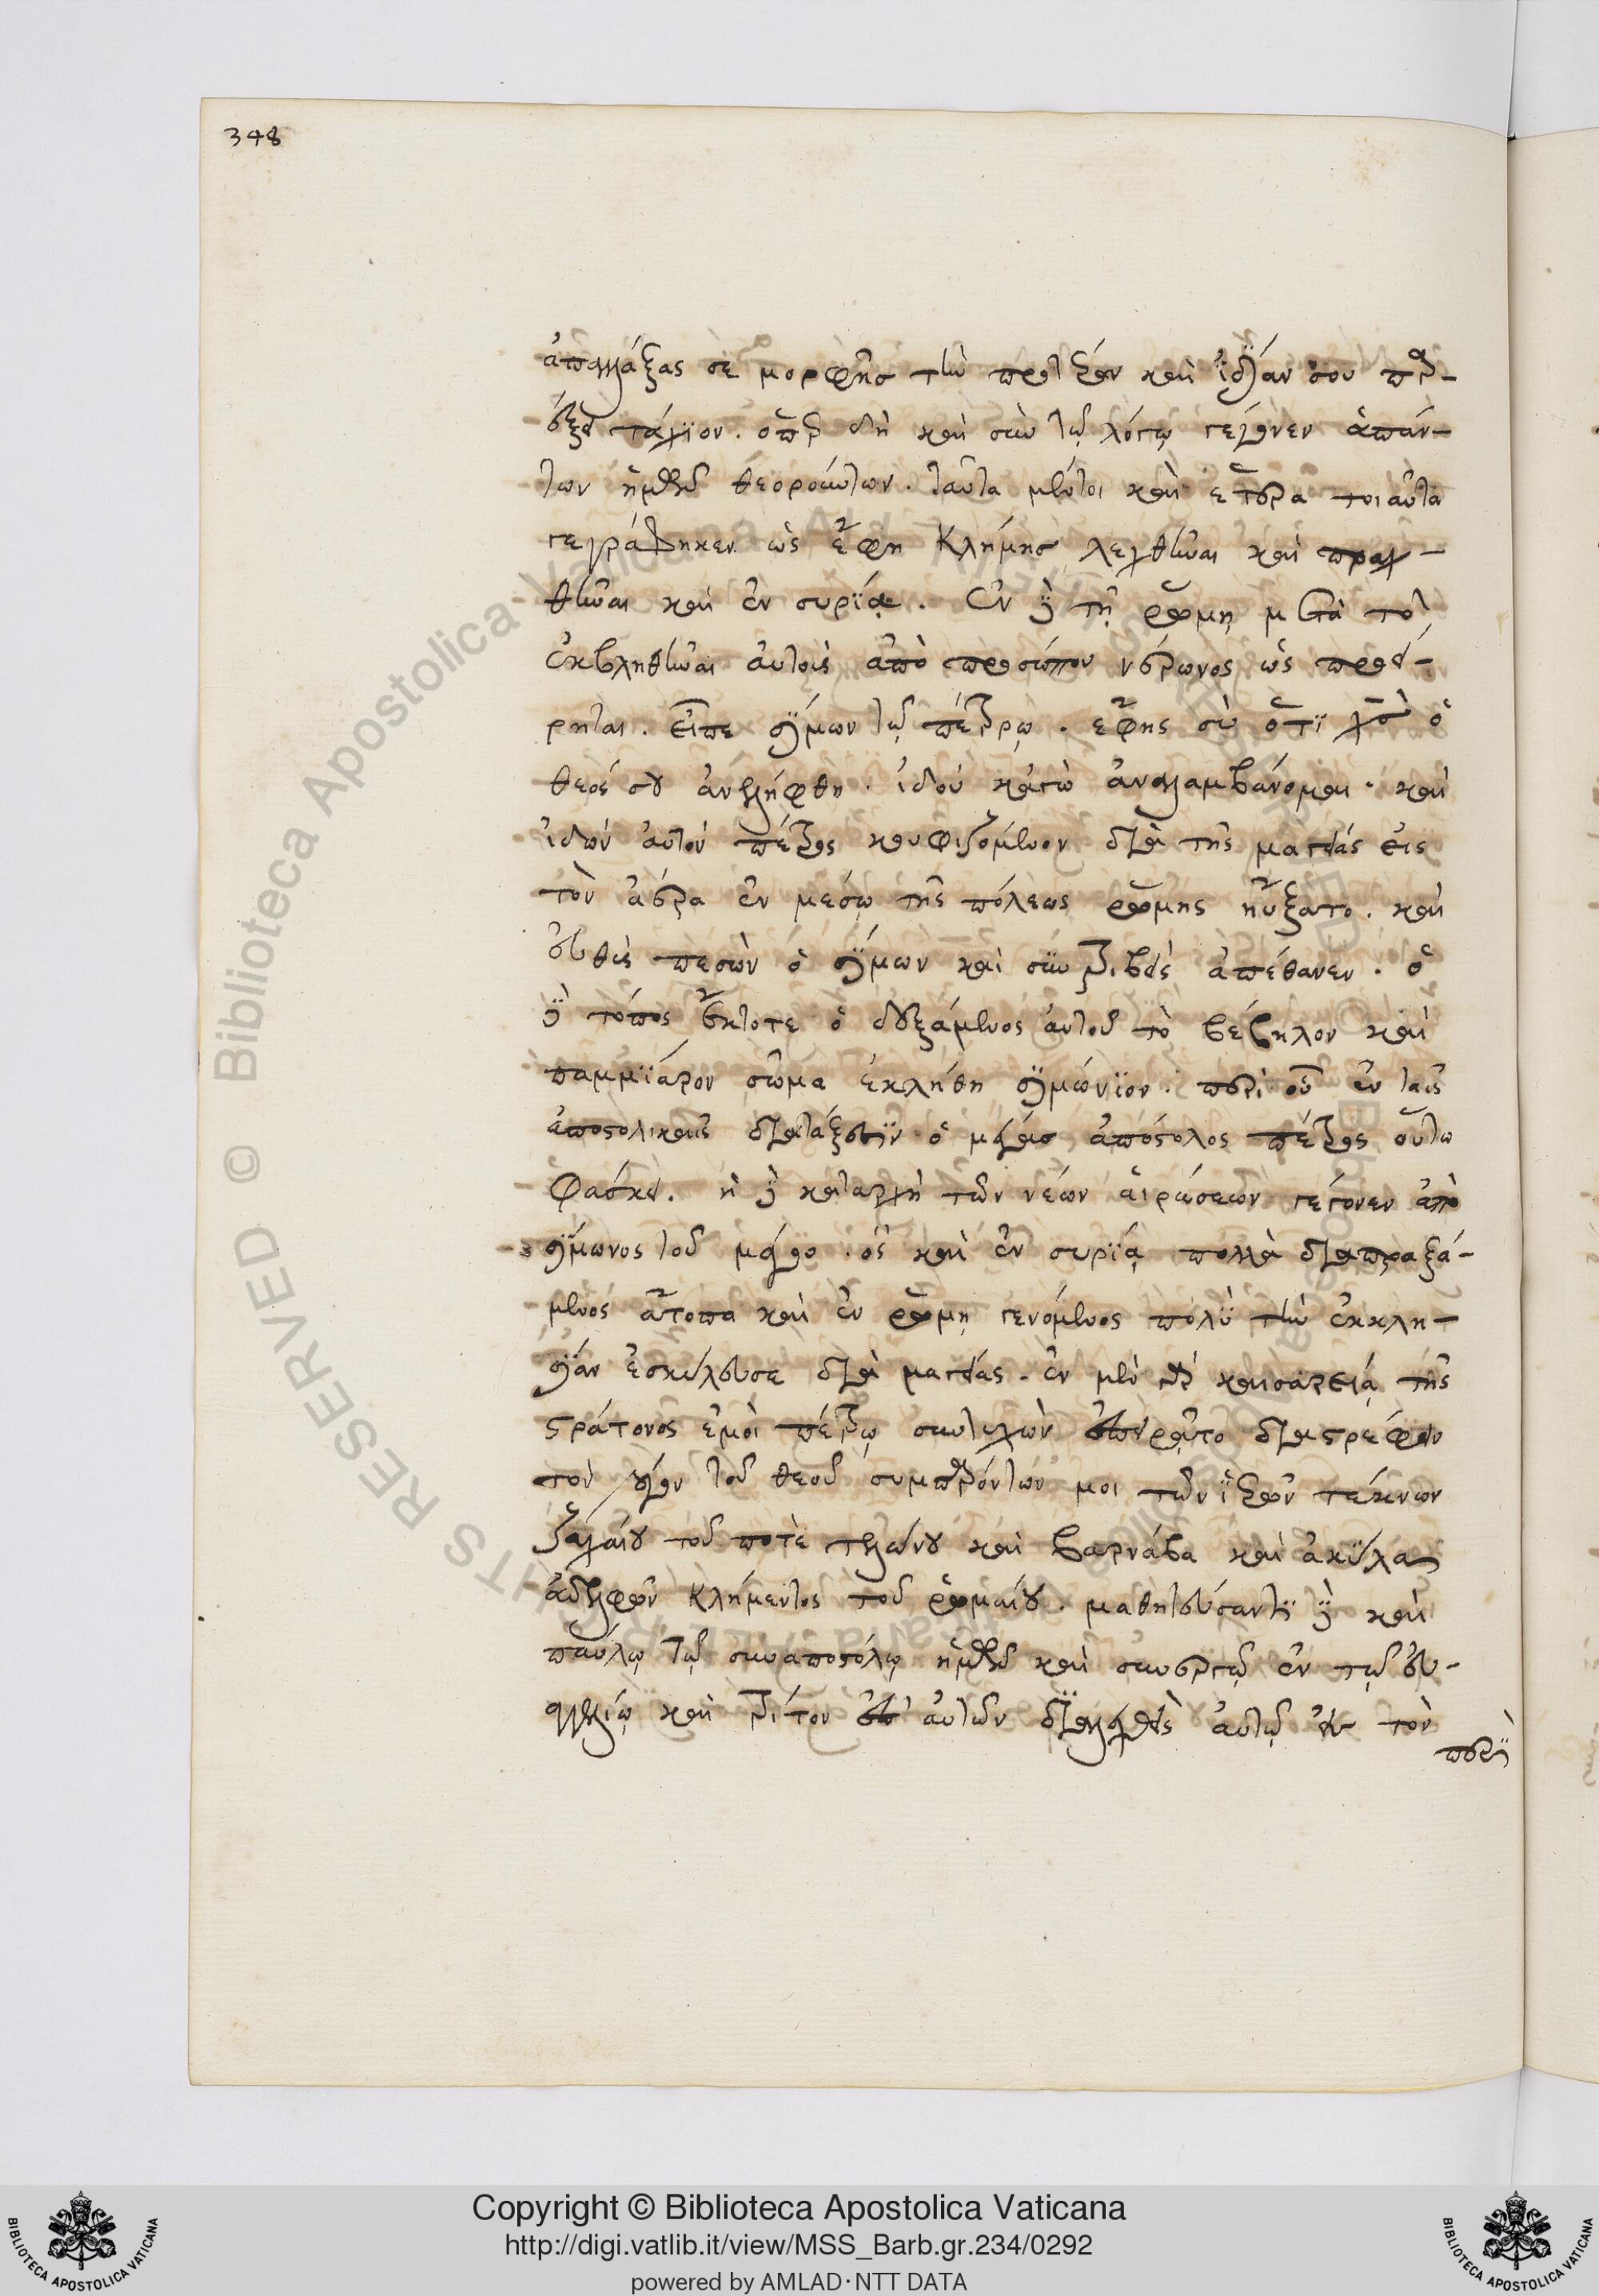 348
ἀπαλλάξας σε μορφῆς τὴν προτέραν καὶ ἰδίαν σου παρ-
έξει τάχιον. ὅπερ δὴ καὶ σὺν τῷ λόγῳ γέγονεν ἁπάν-
των ἡμῶν θεορούντων. ταῦτα μέντοι καὶ ἕτερα τοιαῦτα
γεγράφηκεν ὡς ἔφη Κλήμης λεχθῆναι καὶ πραχ-
θῆναι καὶ ἐν συρίᾳ. Ἐν δὲ τῇ ρώμῃ μετὰ τὸ
ἐκβληθῆναι αὐτοὺς ἀπὸ προσώπου νέρωνος ὡς προεί-
ρηται. εἶπε σίμων τῷ πέτρῳ. ἔφης σὺ ὅτι χ̅σ̅ ὁ
θεός σου ἀνελήφθη. ἰδού κἀγὼ ἀναλαμβάνομαι. καὶ
ἰδὼν αὐτὸν πέτρος κουφιζόμενον διὰ τῆς μαγείας εἰς
τὸν ἀέρα ἐν μέσῳ τῆς πόλεως ρώμης ηὔξατο. καὶ
εὐθὺς πεσὼν ὁ σίμων καὶ συντριβεὶς ἀπέθανεν. ὁ
δὲ τόπος ἔκτοτε ὁ δεξάμενος αὐτοῦ τὸ βέβηλον καὶ
παμμίαρον σῶμα ἐκλήθη σιμώνιον. περὶ οὗ ἐν ταῖς
ἀποστολικαῖς διατάξεσιν ὁ μέγας ἀπόστολος πέτρος οὕτω
φάσκει. ἡ δὲ καταρχὴ τῶν νέων αἱρέσεων γέγονεν ἀπὸ
σίμωνος τοῦ μάγου. ὃς καὶ ἐν συρίᾳ πολλὰ διαπραξά-
μενος ἄτοπα καὶ ἐν ρώμῃ γενόμενος πολὺ τὴν ἐκκλη-
σίαν ἐσκύλευσε διὰ μαγείας. ἐν μὲν καισαρείᾳ τῆς
στράτονος ἐμοὶ πέτρῳ συντυχὼν ἐπειρᾶτο διαστρέφειν
τὸν λόγον τοῦ θεοῦ συμπαρόντων μοι τῶν ἱερῶν τέκνων
ζακχαίου τοῦ ποτὲ τελώνου καὶ βαρνάβα καὶ ἀκύλα
ἀδελφῶν Κλήμεντος τοῦ ρωμαίου. μαθητεύσαντι δὲ καὶ
παύλῳ τῷ συναποστόλῳ ἡμῶν καὶ συνεργῷ ἐν τῷ εὐ-
αγγελίῳ καὶ τρίτον ἐπ' αὐτῶν διαλεχθεὶς αὐτῷ εἰς τὸν
περὶ